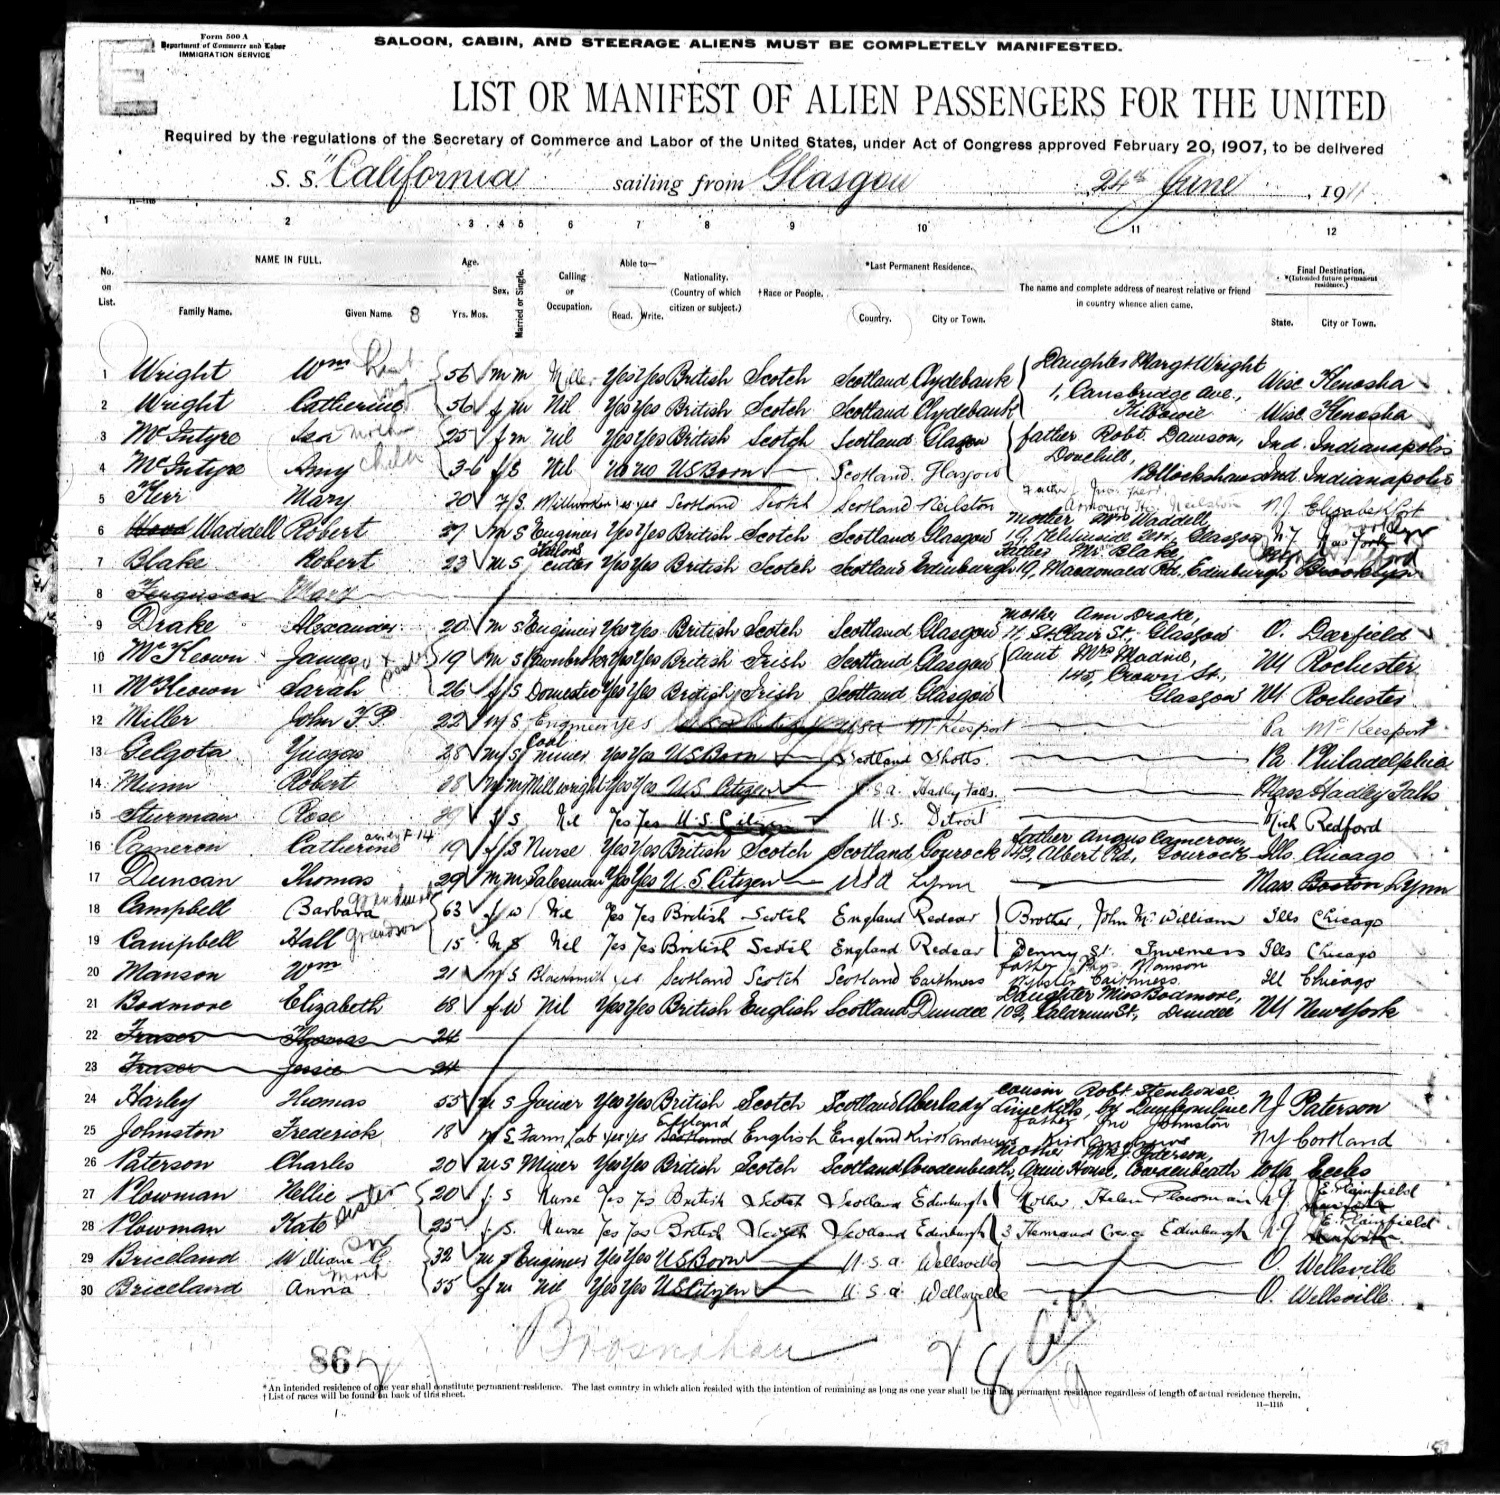 Form 500 A
Department of Commerce and Labor
IMMIGRATION SERVICE
E
SALOON, CABIN, AND STEERAGE ALIENS MUST BE COMPLETELY MANIFESTED.
LIST OR MANIFEST OF ALIEN PASSENGERS FOR THE UNITED
Required by the regulations of the Secretary of Commerce and Labor of the United States, under Act of Congress approved February 20, 1907, to be delivered
S. S. "California" sailing from Glasgow 24th June, 1911
1 2 3 4 5 6 7 8 9 10 11 12
No. on List.
NAME IN FULL.
Family Name. Given Name. 8
Age.
Yrs. Mos.
Sex.
Married or Single.
Calling or Occupation.
Able to—
Read. Write.
Nationality. (Country of which citizen or subject.)
†Race or People.
*Last Permanent Residence.
Country. City or Town.
The name and complete address of nearest relative or friend in country whence alien came.
Final Destination.
*(Intended future permanent residence.)
State. City or Town.
1 Wright Wm 56 m m Yes Yes British Scotch Scotland Clydebank Daughter Margt Wright Wisc Kenosha
2 Wright Catherine 56 f m Nil Yes Yes British Scotch Scotland Clydebank 1, Cansbridge Ave., Kilbowie Wisc Kenosha
3 McIntyre mother 25 f m Nil Yes Yes British Scotch Scotland Glasgow father Robt. Dawson, Ind. Indianapolis
4 McIntyre Amy child 3-6 f S Nil no no US Born Scotland Glasgow Dovehill, Pollockshaws Ind. Indianapolis
5 Kerr Mary 20 f S. Millworker yes yes Scotland Scotch Scotland Neilston N.J. Elizabethport
6 Wood Waddell Robert 27 m S Engineer Yes Yes British Scotch Scotland Glasgow mother Mrs Waddell, 19, Kelvinside Terr, Glasgow N.Y. New York
7 Blake Robert 23 m S Tailors cutter Yes Yes British Scotch Scotland Edinburgh father Mr Blake, 19, Macdonald Rd, Edinburgh Brooklyn
8 Ferguson Mary
9 Drake Alexander 20 m S Engineer Yes Yes British Scotch Scotland Glasgow mother Ann Drake, 17, St Clair St., Glasgow O. Dearfield
10 McKeown James 19 m S Pawnbroker Yes Yes British Irish Scotland Glasgow Aunt Mrs Madine, NY Rochester
11 McKeown Sarah 26 f S Domestic Yes Yes British Irish Scotland Glasgow 145, Crown St., Glasgow NY Rochester
12 Miller John F.P. 22 m S Engineer yes USA McKeesport Pa McKeesport
13 Gelgota 28 m S Coal miner Yes Yes US Born Scotland Shotts Pa Philadelphia
14 Munn Robert 38 m m Millwright Yes Yes US Citizen U.S.A. Hadley Falls Mass Hadley Falls
15 Sturman Rose f S Nil Yes Yes U.S. Citizen U.S. Detroit Mich Redford
16 Cameron Catherine 19 f S Nurse Yes Yes British Scotch Scotland Gourock father Angus Cameron, 42, Albert Rd, Gourock Ills Chicago
17 Duncan Thomas 29 m m Salesman Yes Yes U.S. Citizen USA Lynn Mass Boston Lynn
18 Campbell Barbara grandmother 63 f w Nil Yes Yes British Scotch England Redcar Brother, John McWilliam Ills Chicago
19 Campbell Hall grandson 15 m S Nil Yes Yes British Scotch England Redcar Denny St. Inverness Ills Chicago
20 Manson Wm 21 m S Blacksmith yes Scotland Scotch Scotland Caithness father Manson Caithness Ill Chicago
21 Bodmore Elizabeth 68 f w Nil Yes Yes British English Scotland Dundee Daughter Miss Bodmore, 102, St., Dundee NY New York
22 Fraser Thomas 24
23 Fraser Jessie 24
24 Harley Thomas 55 m S Joiner Yes Yes British Scotch Scotland Aberlady cousin Robt Stenhouse Limekilns, by Dunfermline NJ Paterson
25 Johnston Frederick 18 m S Farm Lab yes yes England Scotland English England Kirk Andrews father Jno Johnston Kirk Andrews NY Cortland
26 Paterson Charles 20 m S Miner Yes Yes British Scotch Scotland Cowdenbeath mother Mrs J. Paterson, House, Cowdenbeath WVa Eccles
27 Plowman Nellie 20 f. S Nurse Yes Yes British Scotch Scotland Edinburgh Mother Helen Plowman N.J E. Plainfield
28 Plowman Kate sister 25 f. S. Nurse Yes Yes British Scotch Scotland Edinburgh 3 Cresc Edinburgh N.J E. Plainfield
29 Briceland William C. son 32 m S Engineer Yes Yes US Born U.S.A. Wellsville O. Wellsville
30 Briceland Anna moth 55 f m Nil Yes Yes US Citizen U.S.A. Wellsville O. Wellsville
Brosnahan
86
*An intended residence of one year shall constitute permanent residence. The last country in which alien resided with the intention of remaining as long as one year shall be the last permanent residence regardless of length of actual residence therein.
†List of races will be found on back of this sheet.
11—1115